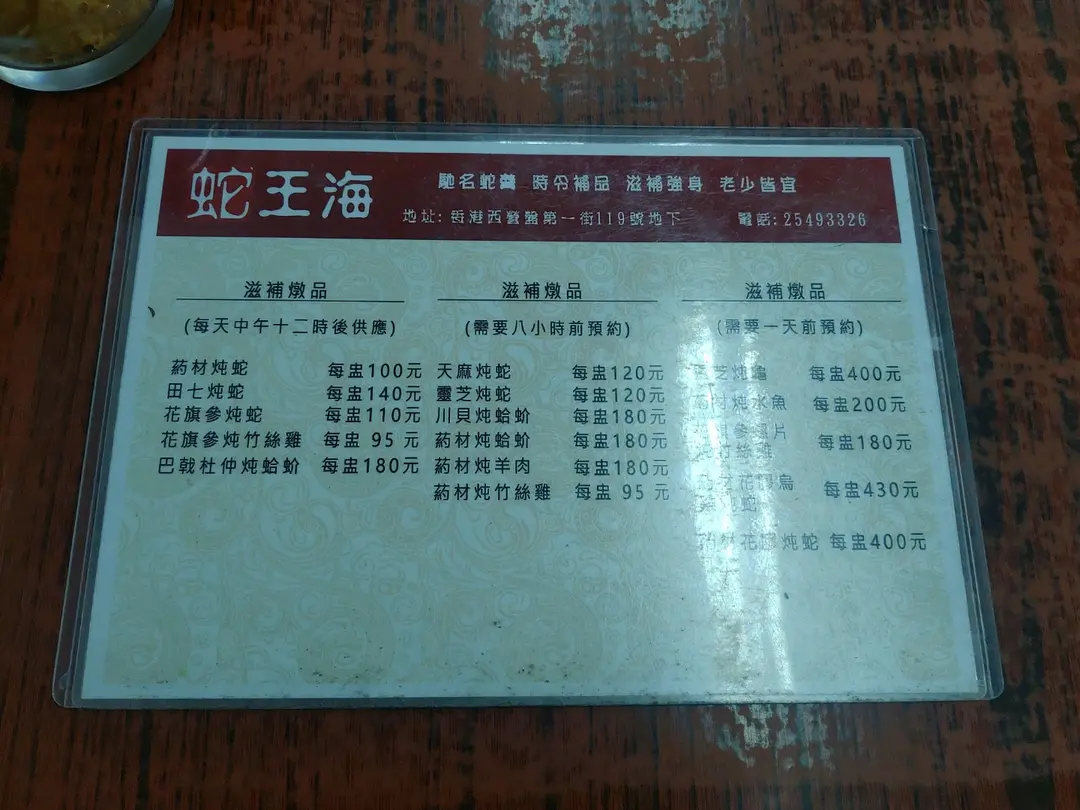 蛇王海
馳名蛇羹 時令補品 滋補強身 老少皆宜
地址: 香港西營盤第一街119號地下 電話: 25493326
滋補燉品
(每天中午十二時後供應)
葯材炖蛇 每盅100元
田七炖蛇 每盅140元
花旗參炖蛇 每盅110元
花旗參炖竹絲雞 每盅 95 元
巴戟杜仲炖蛤蚧 每盅180元
滋補燉品
(需要八小時前預約)
天麻炖蛇 每盅120元
靈芝炖蛇 每盅120元
川貝炖蛤蚧 每盅180元
葯材炖蛤蚧 每盅180元
葯材炖羊肉 每盅180元
葯材炖竹絲雞 每盅 95 元
滋補燉品
(需要一天前預約)
芝炖龜 每盅400元
材炖水魚 每盅200元
片
竹絲雞 每盅180元
花 烏
蛇 每盅430元
花 炖蛇 每盅400元